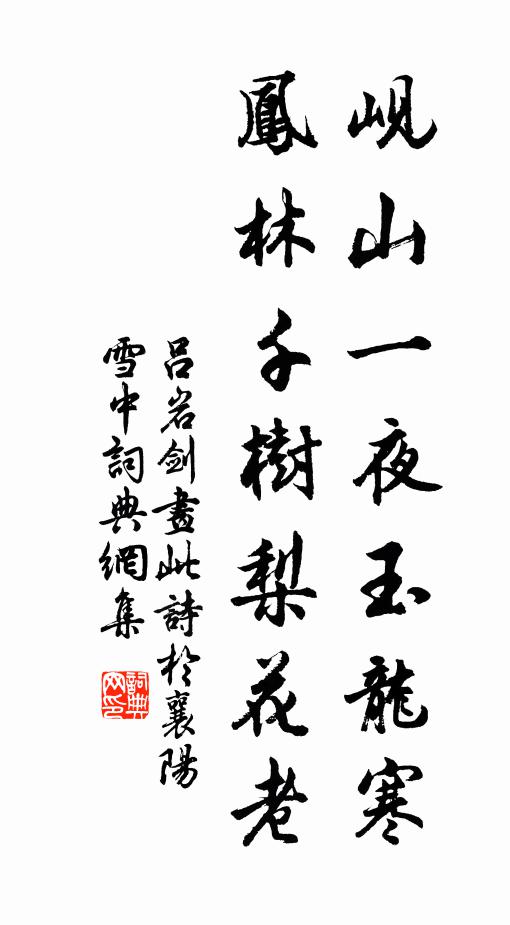 峴山一夜玉龍寒
鳳林千樹梨花老
呂岩劍畫此詩於襄陽
雪中詞典網集
詞典网印